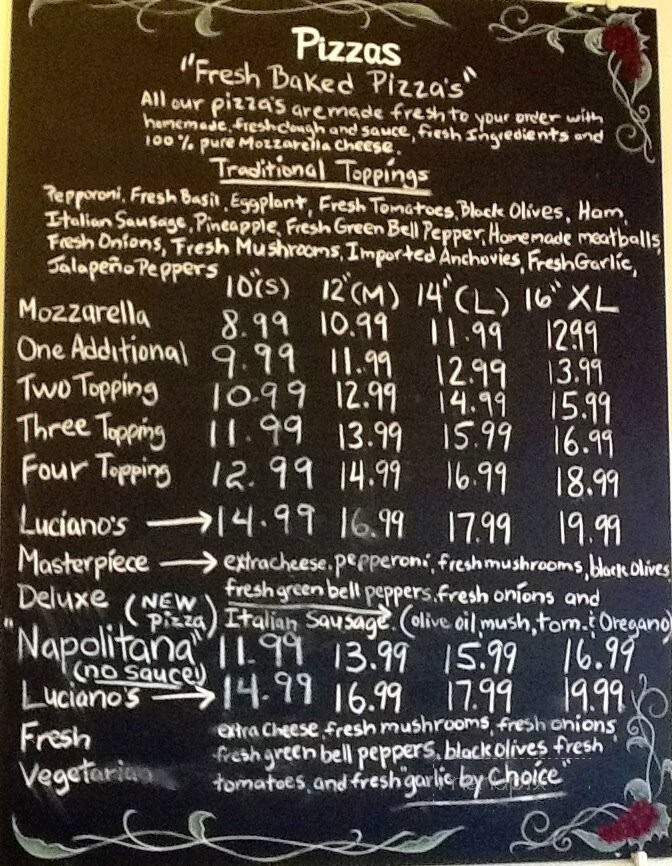 Pizzas
"Fresh Baked Pizza's"
All our pizza's are made fresh to your order with
homemade, fresh dough and sauce, fresh Ingredients and
100% pure Mozzarella Cheese.
Traditional Toppings
Pepporoni, Fresh Basil, Eggplant, Fresh Tomatoes, Black Olives, Ham,
Italian Sausage, Pineapple, Fresh Green Bell Pepper, Homemade meatballs,
Fresh Onions, Fresh Mushrooms, Imported Anchovies, Fresh Garlic,
Jalapeño Peppers
10"(S) 12"(M) 14"(L) 16" XL
Mozzarella 8.99 10.99 11.99 12.99
One Additional 9.99 11.99 12.99 13.99
Two Topping 10.99 12.99 14.99 15.99
Three Topping 11.99 13.99 15.99 16.99
Four Topping 12.99 14.99 16.99 18.99
Luciano's → 14.99 16.99 17.99 19.99
Masterpiece → extra cheese, pepperoni, fresh mushrooms, black olives
Deluxe fresh green bell peppers, fresh onions and
(NEW Pizza) Italian Sausage. (olive oil, mush, tom. & Oregano)
"Napolitana" 11.99 13.99 15.99 16.99
(no sauce)
Luciano's → 14.99 16.99 17.99 19.99
Fresh extra cheese, fresh mushrooms, fresh onions,
fresh green bell peppers, black olives fresh
Vegetarian tomatoes, and fresh "garlic by choice"